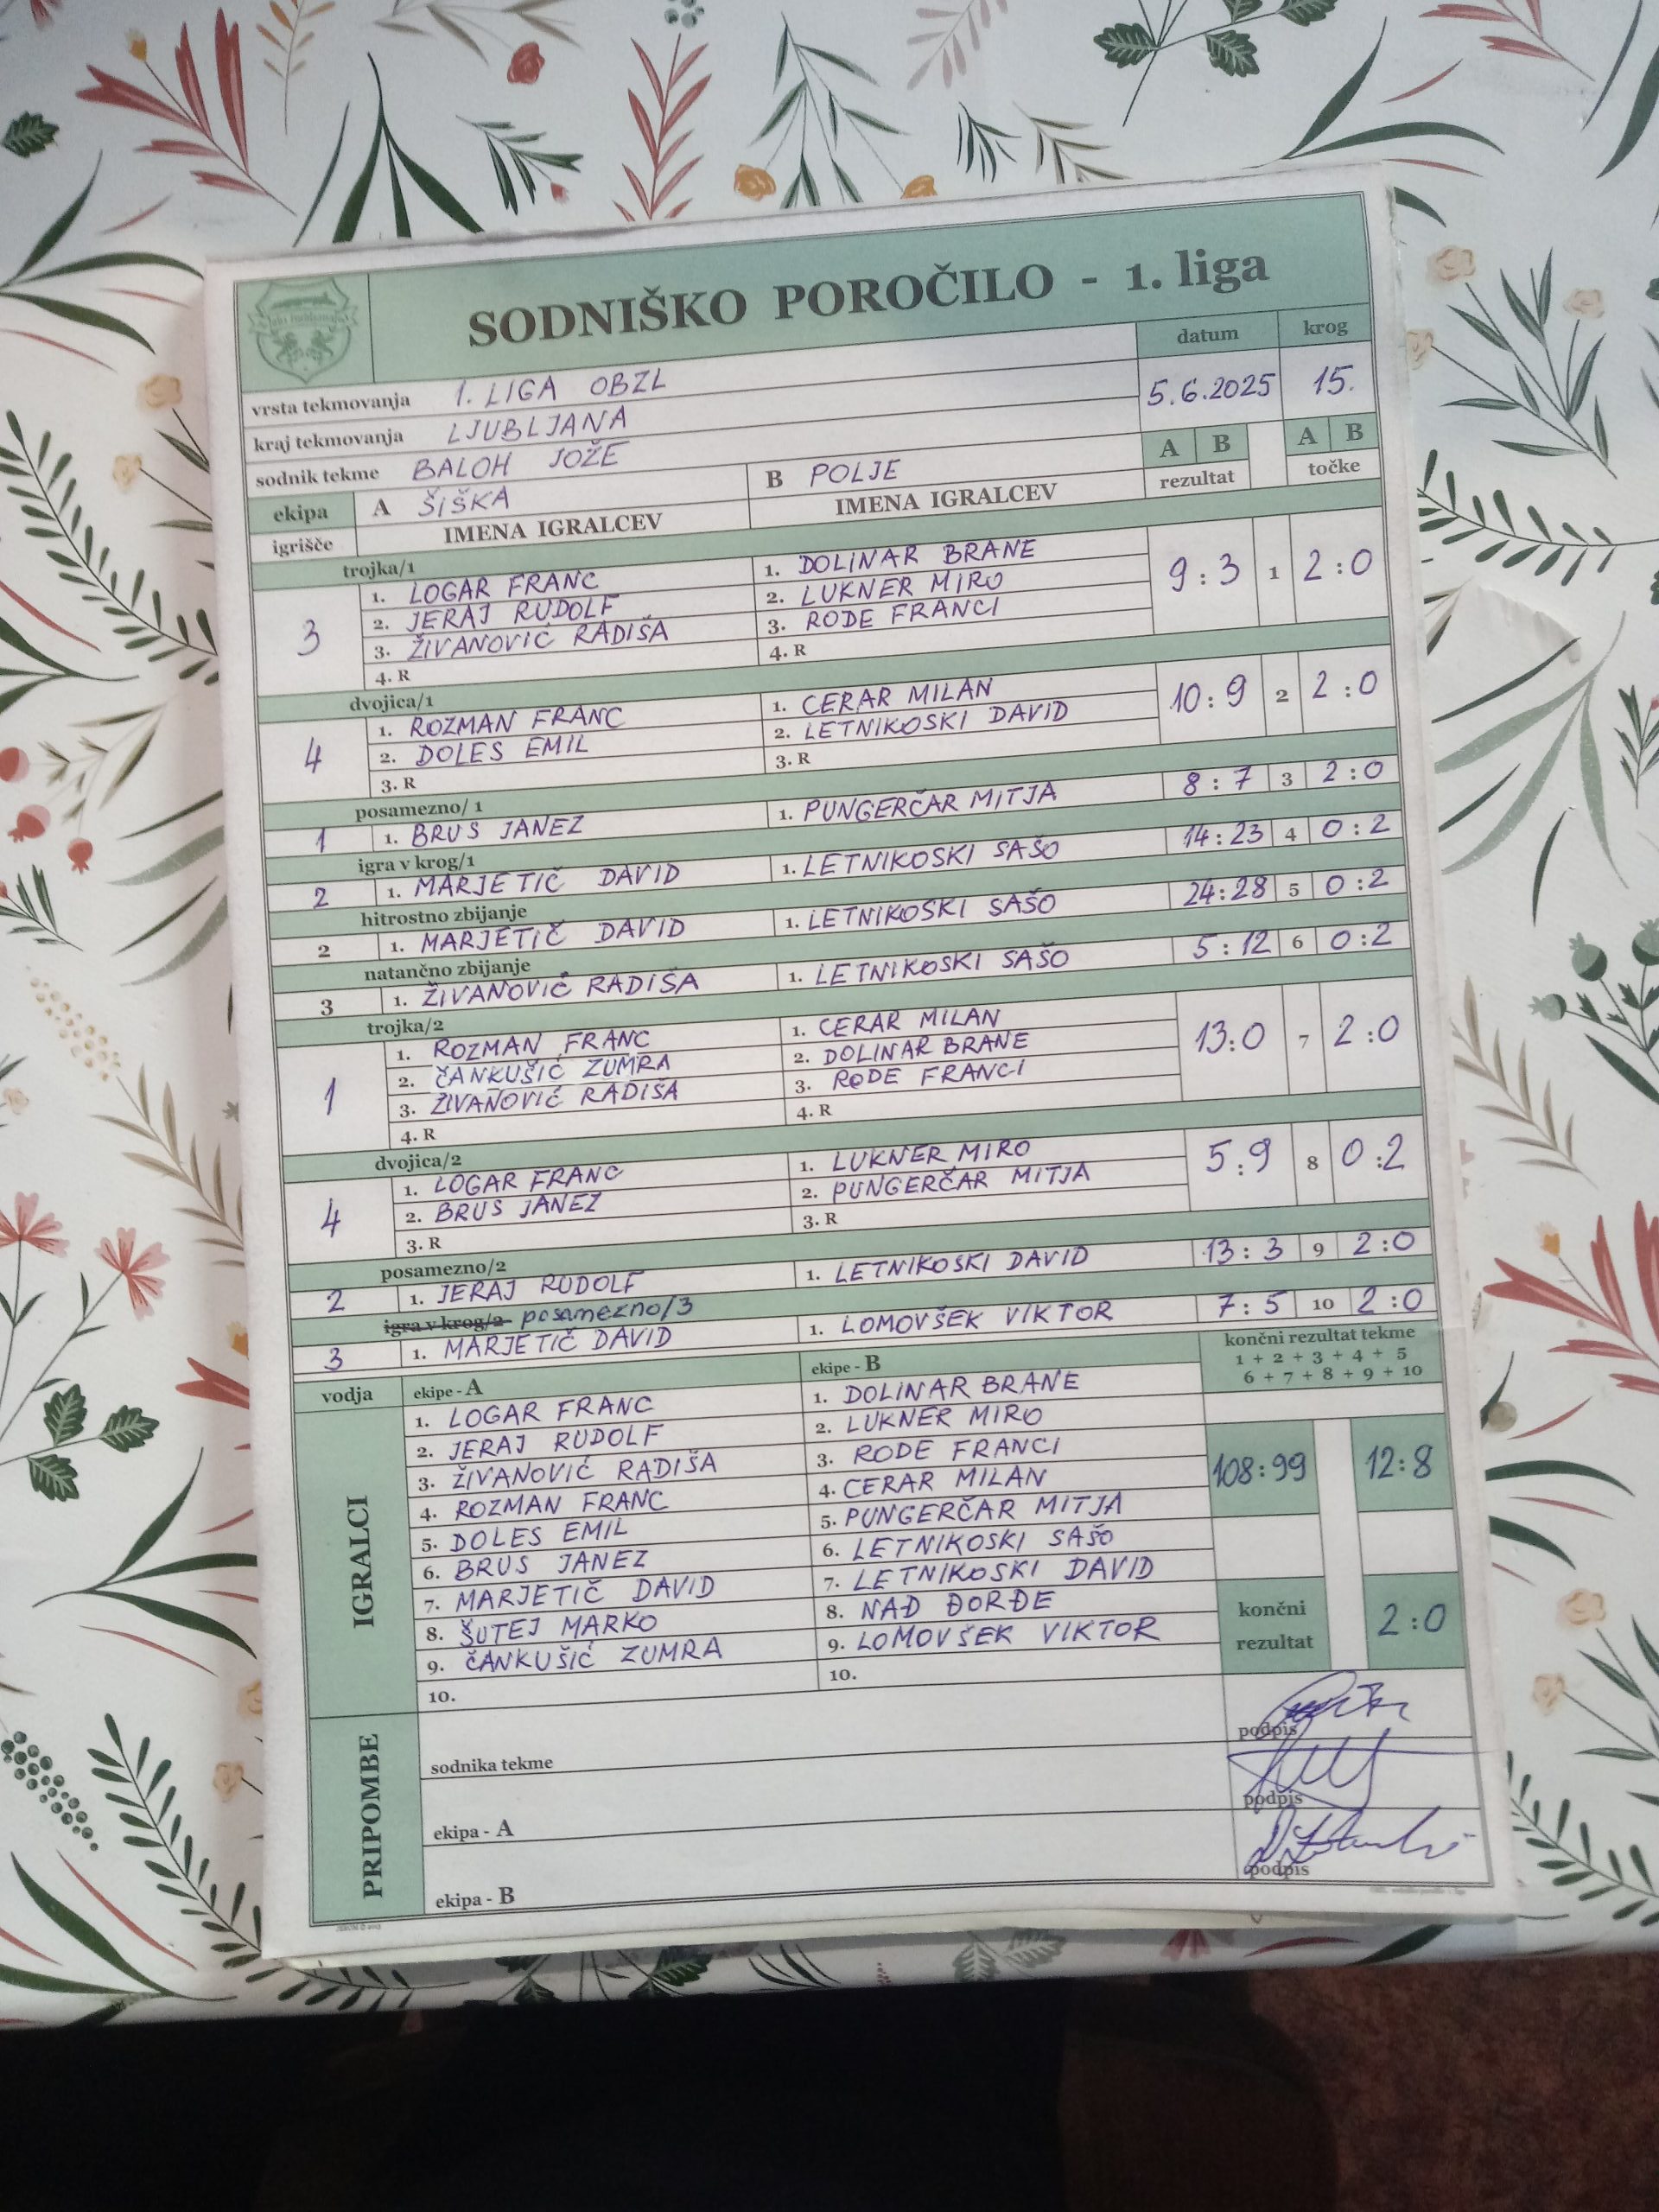 SODNIŠKO POROČILO - 1. liga
datum krog
vrsta tekmovanja 1. LIGA OBZL 5.6.2025 15.
kraj tekmovanja LJUBLJANA
sodnik tekme BALOH JOŽE A B A B
ekipa A ŠIŠKA B POLJE rezultat točke
igrišče IMENA IGRALCEV IMENA IGRALCEV
trojka/1
3 1. LOGAR FRANC 1. DOLINAR BRANE 9:3 1 2:0
2. JERAJ RUDOLF 2. LUKNER MIRO
3. ŽIVANOVIĆ RADIŠA 3. RODE FRANCI
4. R 4. R
dvojica/1
4 1. ROZMAN FRANC 1. CERAR MILAN 10:9 2 2:0
2. DOLES EMIL 2. LETNIKOSKI DAVID
3. R 3. R
posamezno/ 1
1 1. BRUS JANEZ 1. PUNGERČAR MITJA 8:7 3 2:0
igra v krog/1
2 1. MARJETIČ DAVID 1. LETNIKOSKI SAŠO 14:23 4 0:2
hitrostno zbijanje
2 1. MARJETIČ DAVID 1. LETNIKOSKI SAŠO 24:28 5 0:2
natančno zbijanje
3 1. ŽIVANOVIĆ RADIŠA 1. LETNIKOSKI SAŠO 5:12 6 0:2
trojka/2
1 1. ROZMAN FRANC 1. CERAR MILAN 13:0 7 2:0
2. ČANKUŠIĆ ZUMRA 2. DOLINAR BRANE
3. ŽIVANOVIĆ RADIŠA 3. RODE FRANCI
4. R 4. R
dvojica/2
4 1. LOGAR FRANC 1. LUKNER MIRO 5:9 8 0:2
2. BRUS JANEZ 2. PUNGERČAR MITJA
3. R 3. R
posamezno/2
2 1. JERAJ RUDOLF 1. LETNIKOSKI DAVID 13:3 9 2:0
igra v krog/2 posamezno/3
3 1. MARJETIČ DAVID 1. LOMOVŠEK VIKTOR 7:5 10 2:0
vodja ekipe - A ekipe - B končni rezultat tekme
1 + 2 + 3 + 4 + 5
6 + 7 + 8 + 9 + 10
IGRALCI
1. LOGAR FRANC 1. DOLINAR BRANE
2. JERAJ RUDOLF 2. LUKNER MIRO
3. ŽIVANOVIĆ RADIŠA 3. RODE FRANCI
4. ROZMAN FRANC 4. CERAR MILAN 108:99 12:8
5. DOLES EMIL 5. PUNGERČAR MITJA
6. BRUS JANEZ 6. LETNIKOSKI SAŠO
7. MARJETIČ DAVID 7. LETNIKOSKI DAVID
8. ŠUTEJ MARKO 8. NAĐ ĐORĐE
9. ČANKUŠIĆ ZUMRA 9. LOMOVŠEK VIKTOR
10. 10.
končni rezultat 2:0
PRIPOMBE
sodnika tekme podpis
ekipa - A podpis
ekipa - B podpis